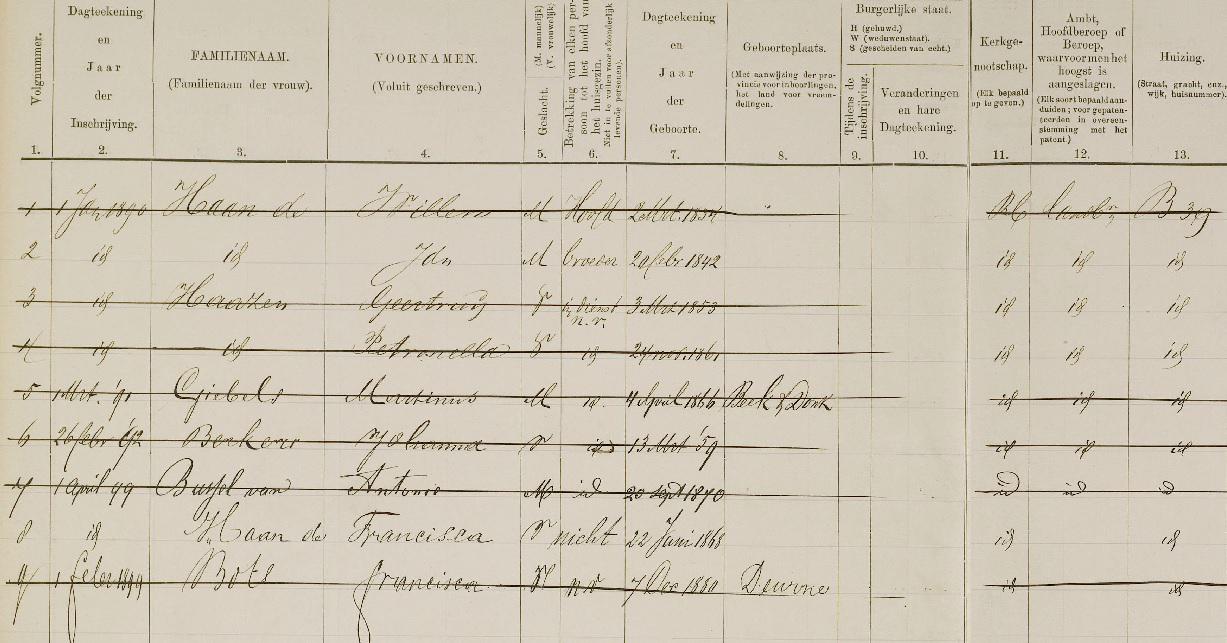 Volgnummer.
Dagteekening
en
Jaar
der
Inschrijving.
FAMILIENAAM.
(Familienaam der vrouw).
VOORNAMEN.
(Voluit geschreven.)
Geslacht. (M. mannelijk) (V. vrouwelijk)
Betrekking van elken persoon tot het hoofd van het huisgezin.
Niet in te vullen voor afzonderlijk levende personen).
Dagteekening
en
Jaar
der
Geboorte.
Geboorteplaats.
(Met aanwijzing der provincie voor inboorlingen, het land voor vreemdelingen.
Burgerlijke staat.
H (gehuwd.)
W (weduwenstaat).
S (gescheiden van echt.)
Tijdens de inschrijving.
Veranderingen
en hare
Dagteekening.
Kerkgenootschap.
(Elk bepaald op te geven.)
Ambt,
Hoofdberoep of
Beroep,
waarvoor men het
hoogst is
aangeslagen.
(Elk soort bepaald aanduiden; voor gepatenteerden in overeenstemming met het patent.)
Huizing.
(Straat, gracht, enz., wijk, huisnummer).
1. 2. 3. 4. 5. 6. 7. 8. 9. 10. 11. 12. 13.
1 1 Jan 1890 Haan de Willem M Hoofd 2 Mrt. 1834 RC B 39
2 id id Jan M broeder 20 febr 1842 id id id
3 id Haazen Geertruij V in dienst n.v. 3 Mrt 1853 id id id
4 id id Petronella V id 24 nov. 1861 id id id
5 1 Mrt. '91 Giebels Martinus M id 4 April 1866 Beek & Donk id id id
6 26 febr '92 Johanna V id 13 Mrt '59 id id id
7 1 april 99 Bussel van Antonie M id 20 sept 1870 id id id
8 id Haan de Francisca V nicht 22 Juni 1868 id id
9 1 febr 1899 Bots francisca V 7 Dec 1880 Deurne id id